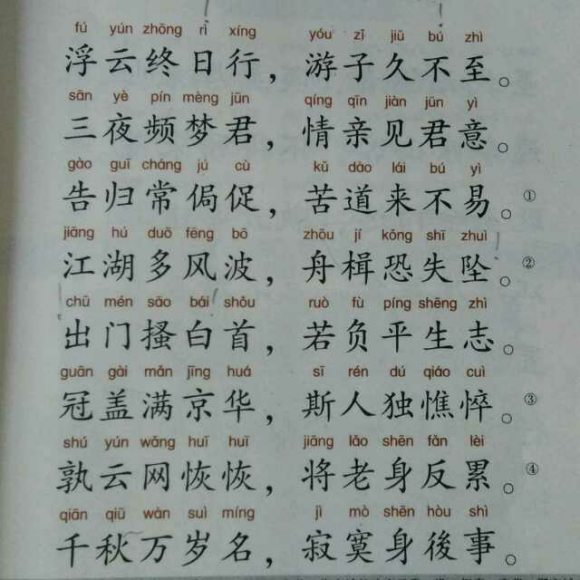 fú yún zhōng rì xíng yóu zǐ jiǔ bú zhì
浮云终日行，游子久不至。
sān yè pín mèng jūn qíng qīn jiàn jūn yì
三夜频梦君，情亲见君意。
gào guī cháng jú cù kǔ dào lái bú yì
告归常侷促，苦道来不易。①
jiāng hú duō fēng bō zhōu jí kǒng shī zhuì
江湖多风波，舟楫恐失坠。②
chū mén sāo bái shǒu ruò fù píng shēng zhì
出门搔白首，若负平生志。
guān gài mǎn jīng huá sī rén dú qiáo cuì
冠盖满京华，斯人独憔悴。③
shú yún wǎng huī huī jiāng lǎo shēn fǎn lèi
孰云网恢恢，将老身反累。④
qiān qiū wàn suì míng jì mò shēn hòu shì
千秋万岁名，寂寞身後事。